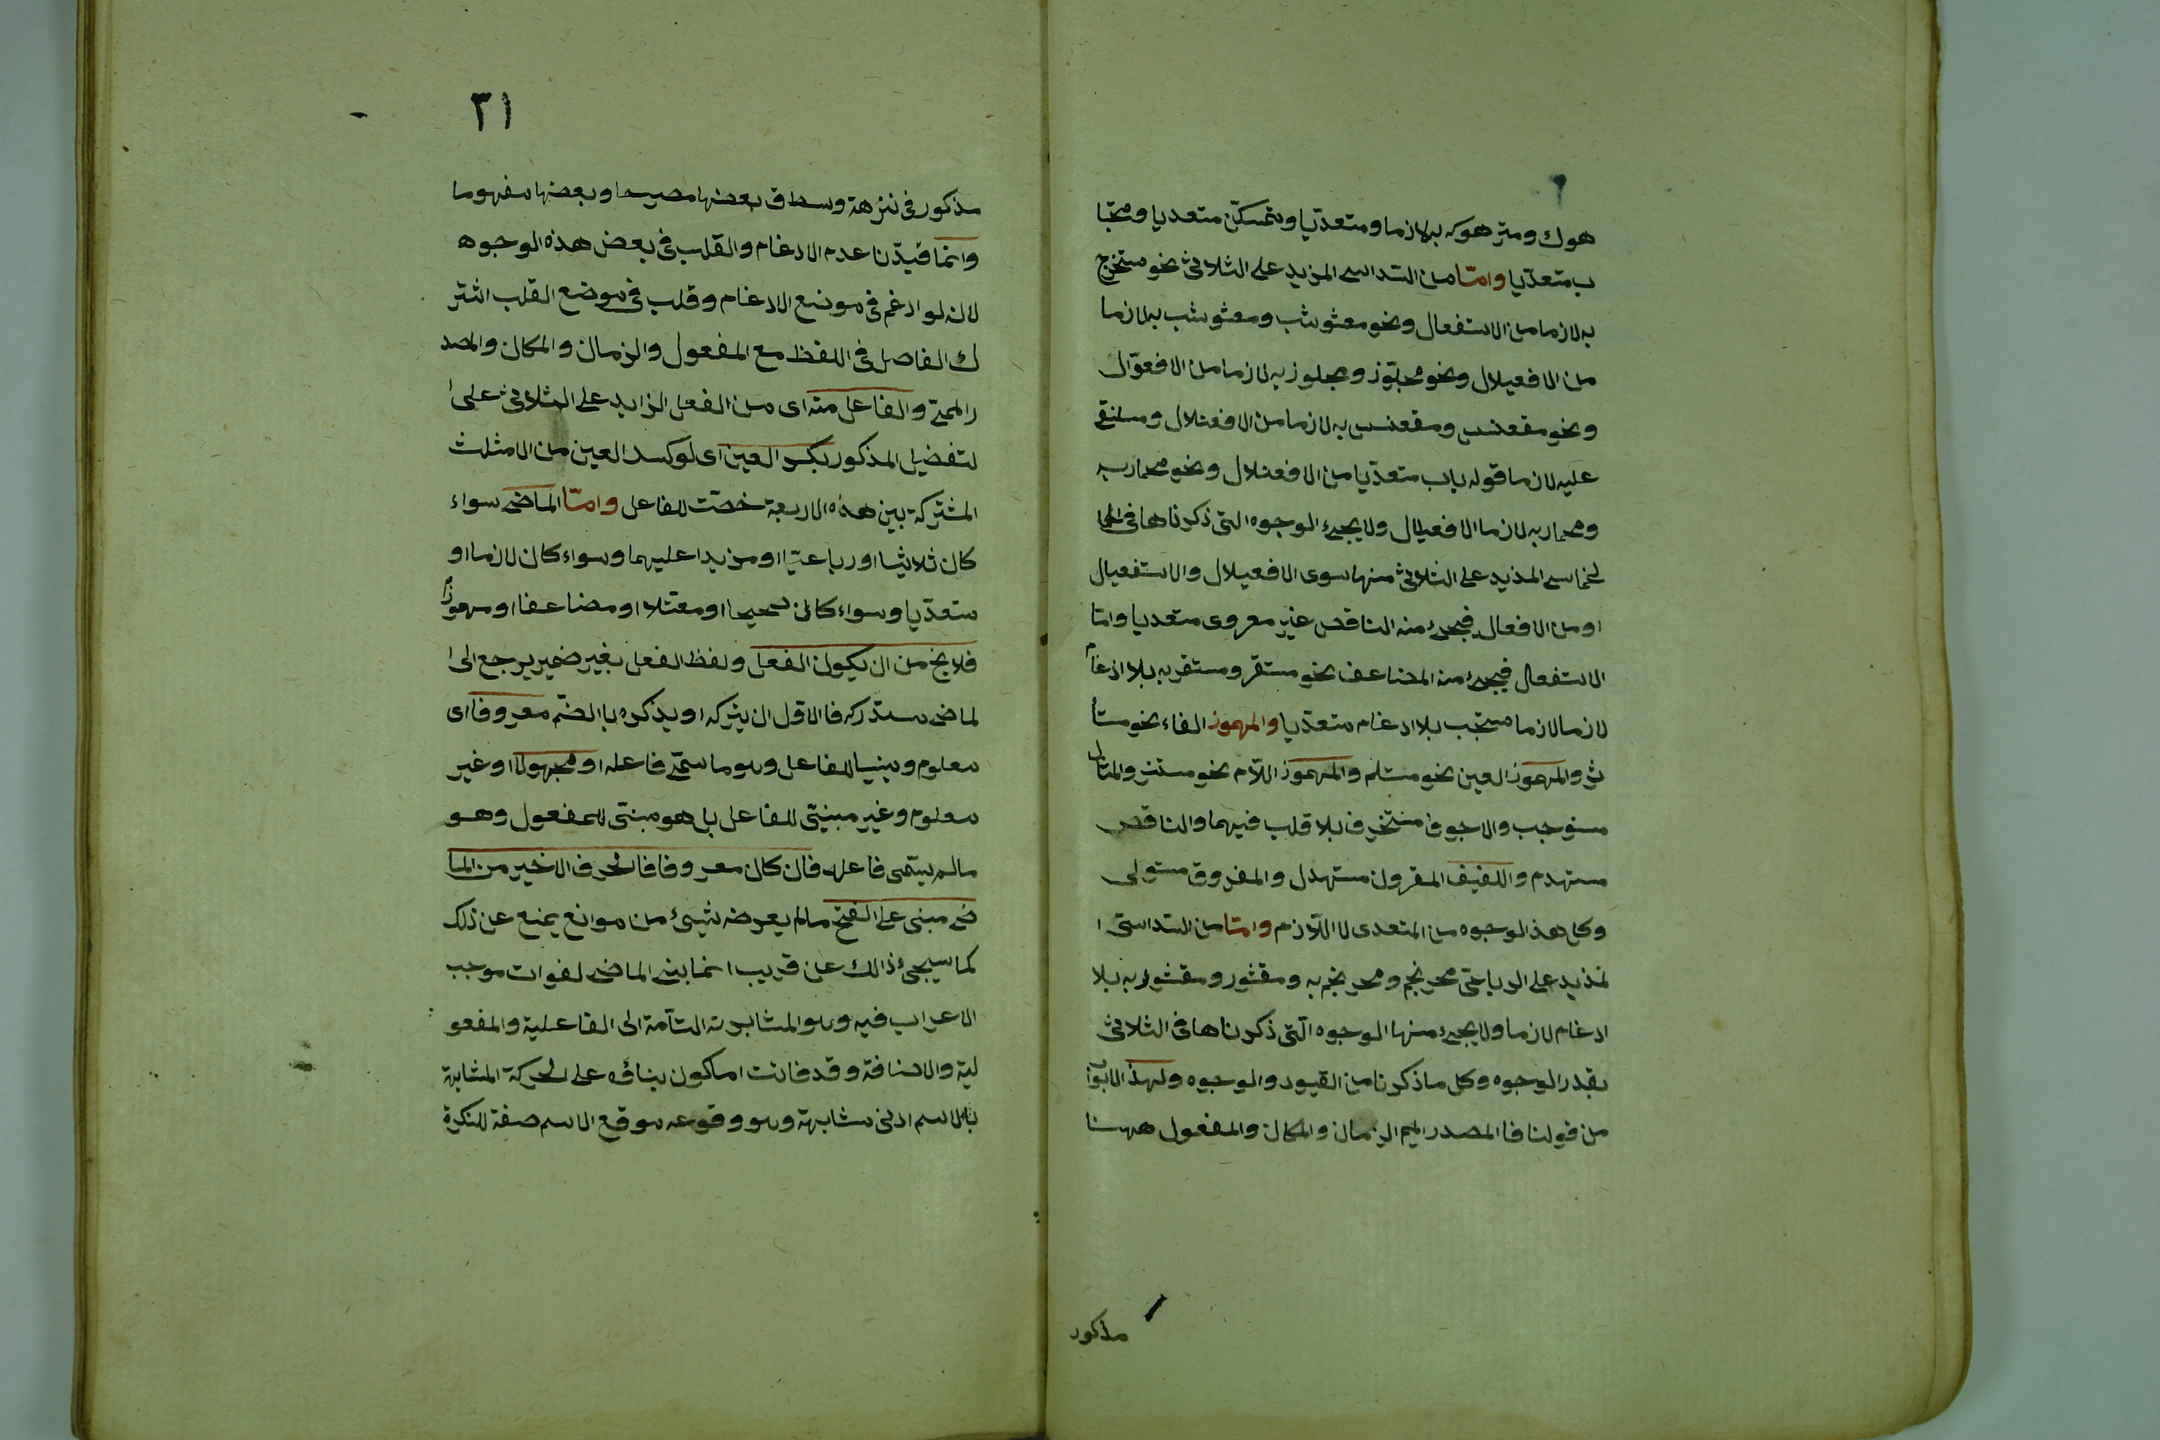 هوك ومتزهوكه به لازما ومتعديا وتمسكن متعديا ومتجا
ب متعديا وامّا من السداسى المزيد على الثلاثى نحو مستخرج
به لازما من الاستفعال ونحو معشوشب ومعشوشب به لازما
من الافعيلال ونحو مجلوّز ومجلوز به لازما من الافعوّال
ونحو مقعنسس ومقعنسس به لازما من الافعنلال ومسلنقى
عليه لازما قوله باب متعديا من الافعنلال ونحو محماربه
ومحماربه لازما الافعيلال ولا يجىء الوجوه التى ذكرناها فى الما
لخماسى المذيد على الثلاثى منها سوى الافعيلال والاستفعيال
او من الافعال فيجىء منه الناقص غير معروى متعديا وامّا
الاستفعال فيجىء من المضاعف نحو مستقر ومستقر به بلا ادغام
لازما لازما مستجب بلا ادغام متعديا والمهموز الفاء نحو مستأ
ثر والمهموز العين نحو مستلم والمهموز اللام نحو مستنر والمثال
مستوجب والاجوف مستخرف بلا قلب فيهما والناقص
مستهدم واللفيف المقرون مستهدل والمفروق مستولى
وكل هذ الوجوه من المتعدى لا اللازم وامّا من السداسى ا
لمذيد على الرباعى محرنجم ومحرنجم به ومقشور ومقشور به بلا
ادغام لازما ولا يجىء منها الوجوه التى ذكرناها فى الثلاثى
بقدر الوجوه وكل ما ذكرنا من القيود والوجوه ولهذ الابواب
من قولنا فا المصدر الميم الزمان والمكان والمفعول ههنا
مذكور
٣١
مذكور فى نزهة وسطاق بعضها مصرحا وبعضها مفهوما
وانما قيدنا عدم الادغام والقلب فى بعض هذه الوجوه
لانه لو ادغم فى موضع الادغام وقلب فى موضع القلب اشتر
ك الفاصل فى اللفظ مع المفعول والزمان والمكان والمصد
ر الميمى والفاعل منه اى من الفعل الزايد على الثلاثى على ا
لتفضيل المذكور بكسر العين اى لو كسر العين من الامثلث
المشتركة بين هذه الاربعة خصت للفاعل وامّا الماضى سواء
كان ثلاثيا او رباعيا او مزيدا عليهما وسواء كان لازما او
متعديا وسواء كان صحيحا او معتلا او مضاعفا او مهموزا
فلا يخ من ان يكون الفعل ولفظ الفعل بغير ضمير يرجع الى ا
لماضى ستدركه فا الاقل ان يتركه او يذكره با الضم معروفا اى
معلوم ومبنيا للفاعل وهو ما سمّى فاعله او مجهولا او غير
معلوم وغير مبنىّ للفاعل بل هو مبنىّ للمفعول وهو
مالم يسمّى فاعله فان كان معروفا فا لحرف الاخير من الما
ضى مبنى على الفتح مالم يعرضه شيئ من موانع يمنع عن ذلك
كما سيجئ ذالك عن قريب انما بنى الماضى لفوات موجب
الاعراب فيه وهو المشابهة التامة الى الفاعلية والمفعو
لية والاضافة وقد فانت اما كون بناؤه على لحركة المشابهة
با الاسم ادنى مشابهة وهو وقوعه موقع الاسم صفة للنكرة